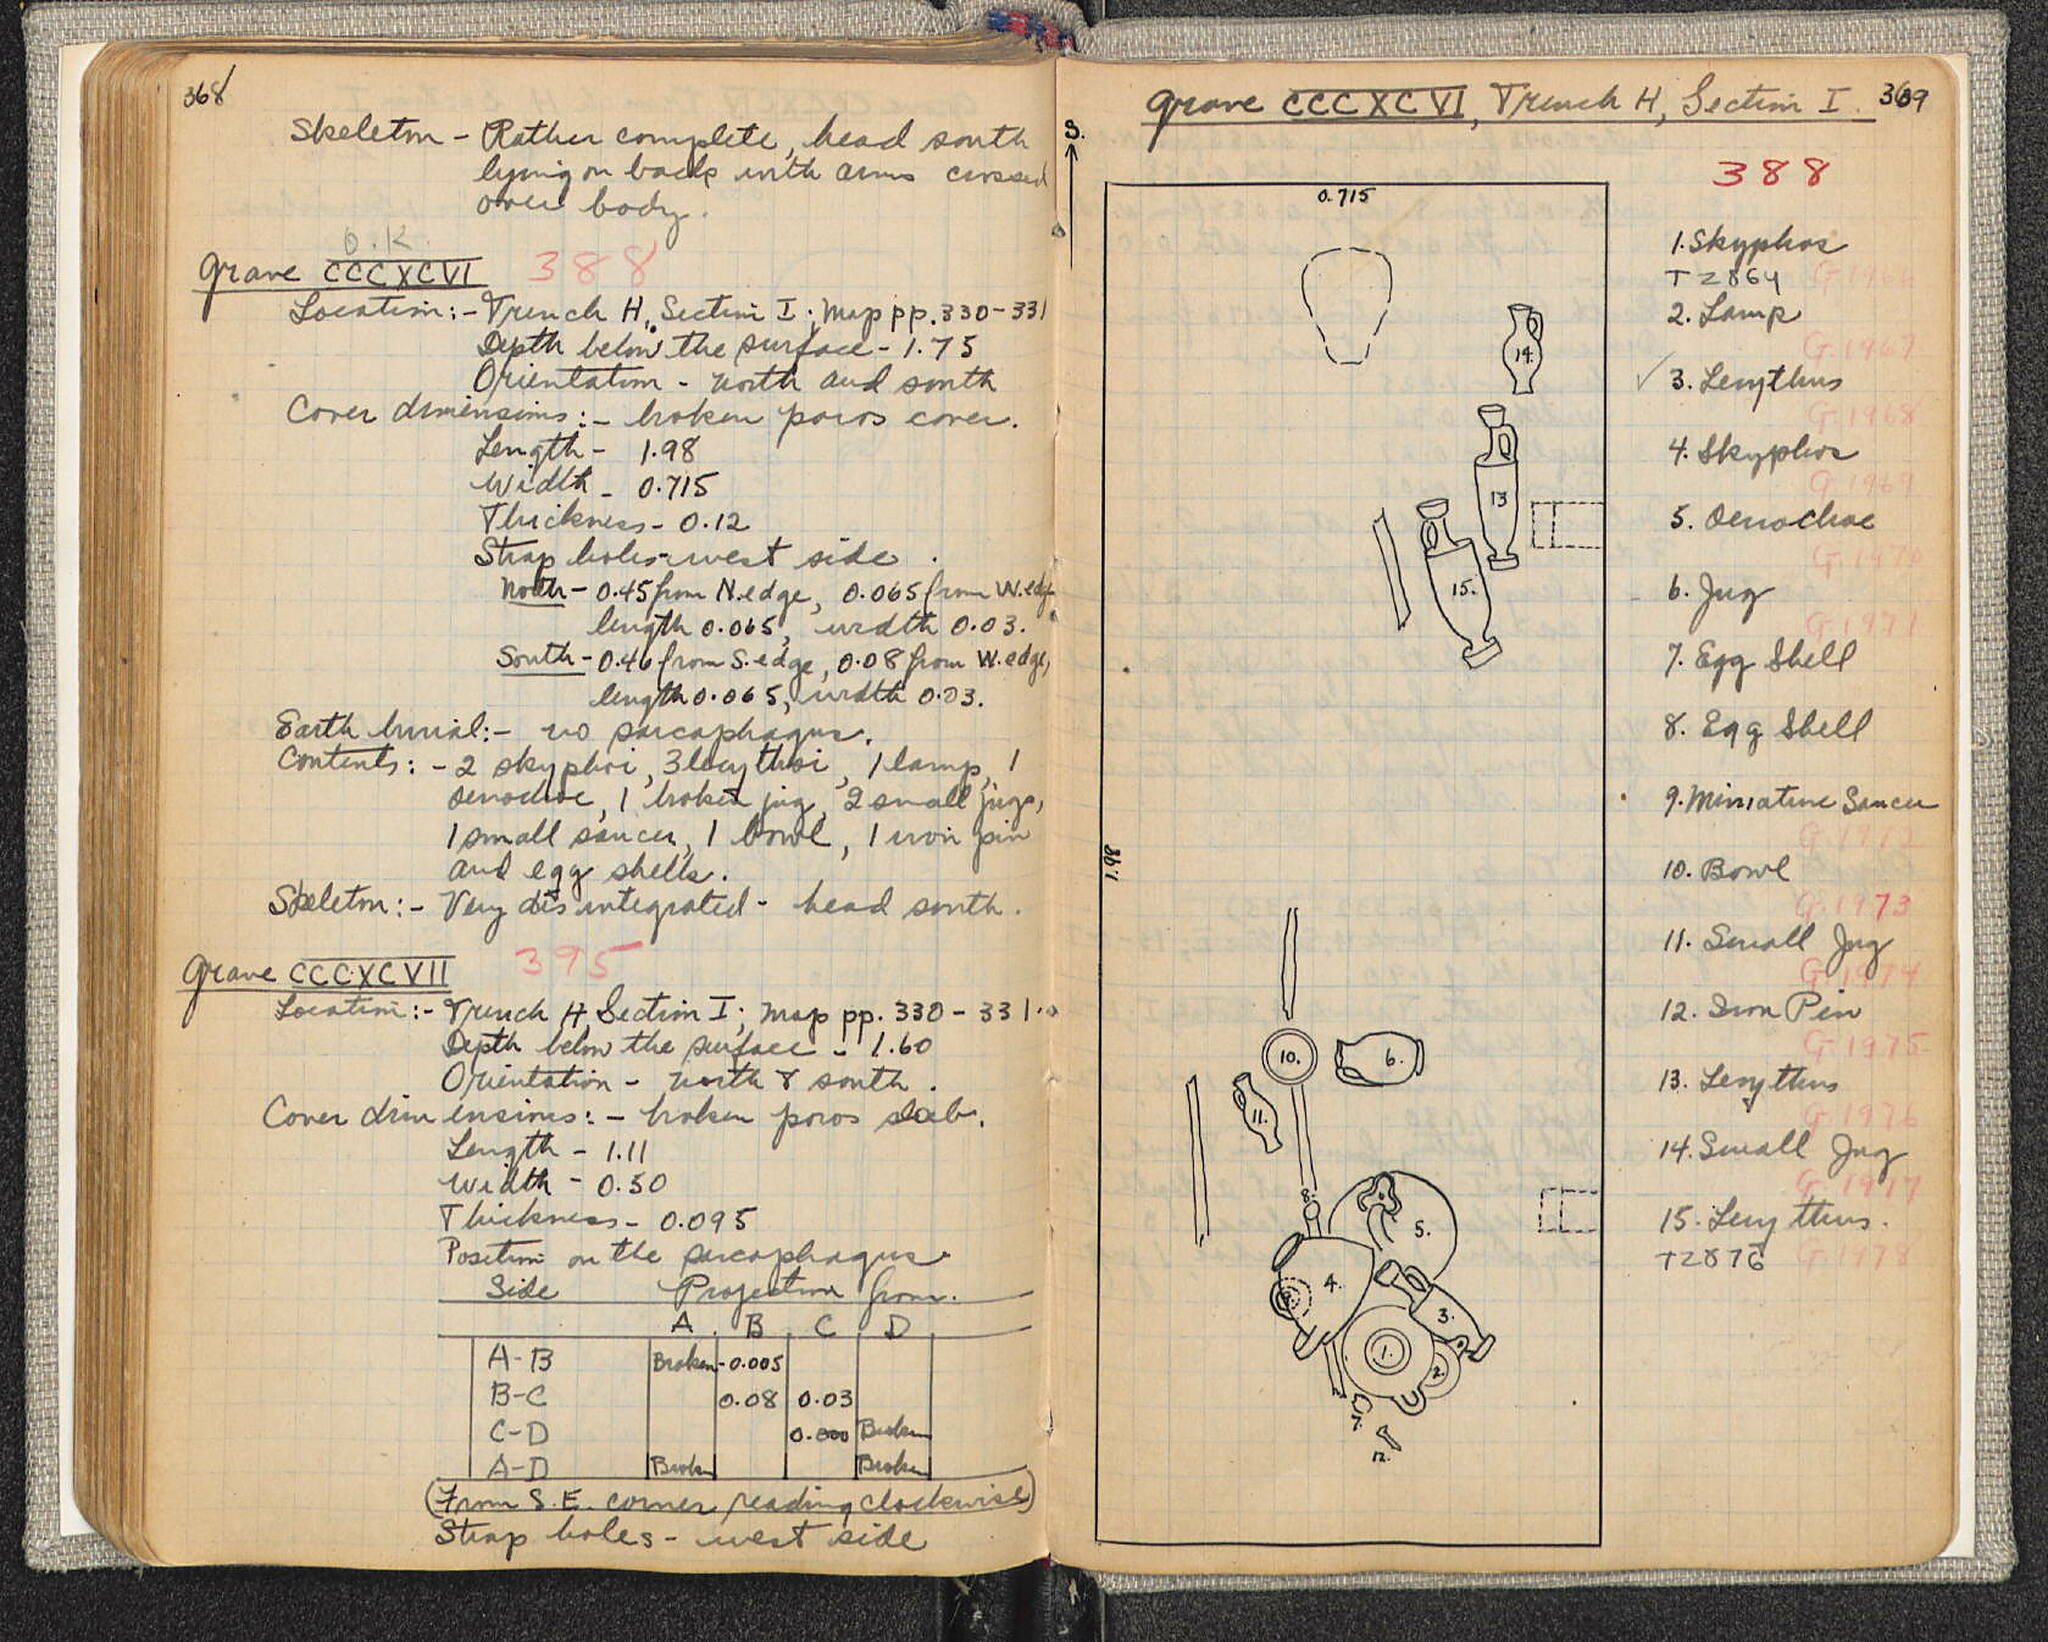 368
Skeleton - Rather complete, head south
lying on back with arms crossed
over body.
O.K.
Grave CCCXCVI 388
Location:- Trench H, Section I; Map pp. 330-331
Depth below the surface - 1.75
Orientation - north and south
Cover dimensions:- broken poros cover.
Length - 1.98
Width - 0.715
Thickness - 0.12
Strap holes - west side.
North - 0.45 from N. edge, 0.065 from W. edge
length 0.065, width 0.03.
South - 0.46 from S. edge, 0.08 from W. edge,
length 0.065, width 0.03.
Earth burial:- no sarcophagus.
Contents:- 2 skyphoi, 3 lecythoi, 1 lamp, 1
oenochoe, 1 broken jug, 2 small jugs,
1 small saucer, 1 bowl, 1 iron pin
and egg shells.
Skeleton:- Very disintegrated - head south.
Grave CCCXCVII 395
Location:- Trench H, Section I; Map pp. 330-331.
Depth below the surface - 1.60
Orientation - north & south.
Cover dimensions:- broken poros slab.
Length - 1.11
Width - 0.50
Thickness - 0.095
Position on the sarcophagus.
Side Projection from.
A B C D
A-B Broken -0.005
B-C 0.08 0.03
C-D 0.000 Broken
A-D Broken Broken
(From S.E. corner reading clockwise)
Strap holes - west side
Grave CCCXCVI, Trench H, Section I. 369
S.
388
0.715
1.98
14.
13
15.
10.
6.
11.
8.
5.
4.
9.
3.
1.
2.
7.
12.
1. Skyphos
T2864 G.1966
2. Lamp
G.1967
✓ 3. Lecythus
G.1968
4. Skyphos
G.1969
5. Oenochoe
G.1970
6. Jug
G.1971
7. Egg Shell
8. Egg Shell
9. Miniature Saucer
G.1972
10. Bowl
G.1973
11. Small Jug
G.1974
12. Iron Pin
G.1975
13. Lecythus
G.1976
14. Small Jug
G.1977
15. Lecythus.
T2876 G.1978